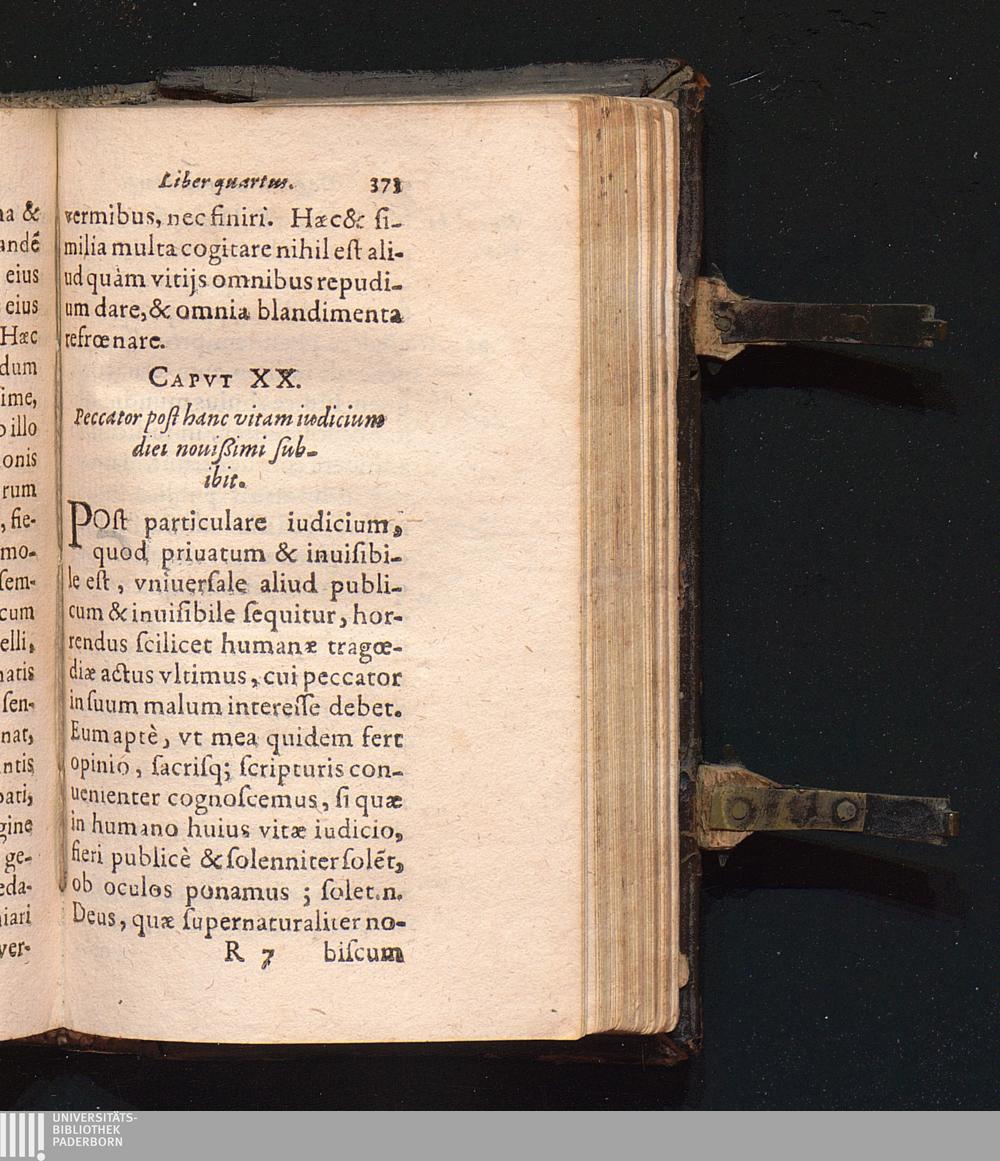 na &
andé
eius
eius
Hæc
dum
ſime,
o illo
onis
rum
, fie-
mo-
ſem-
cum
elli,
natis
ſen-
nat,
ntis
pati,
gine
ge-
eda-
niari
ver-
Liber quartus. 373
vermibus, nec finiri. Hæc & ſi-
milia multa cogitare nihil eſt ali-
ud quàm vitijs omnibus repudi-
um dare, & omnia blandimenta
refrœnare.
CAPVT XX.
Peccator poſt hanc vitam iudicium
diei nouißimi ſub-
ibit.
POſt particulare iudicium,
quod priuatum & inuiſibi-
le eſt, vniuerſale aliud publi-
cum & inuiſibile ſequitur, hor-
rendus ſcilicet humanæ tragœ-
diæ actus vltimus, cui peccator
in ſuum malum intereſſe debet.
Eum aptè, vt mea quidem fert
opinio, ſacriſq; ſcripturis con-
uenienter cognoſcemus, ſi quæ
in humano huius vitæ iudicio,
fieri publicè & ſolenniter ſolẽt,
ob oculos ponamus ; ſolet.n.
Deus, quæ ſupernaturaliter no-
R 7 biſcum
UNIVERSITÄTS-
BIBLIOTHEK
PADERBORN